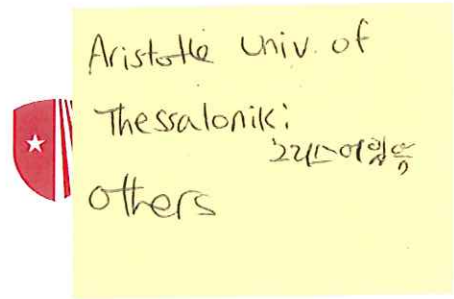 Aristotle univ. of
Thessaloniki
그리스어임
others